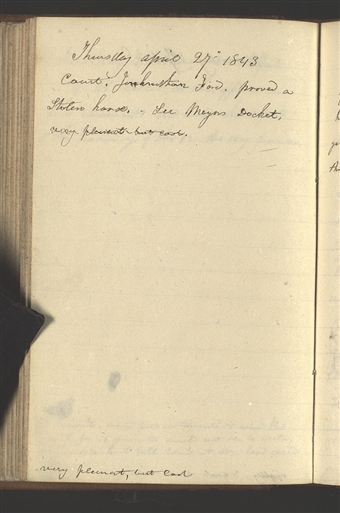 Thursday april 27" 1843
Court. Johnathan Ford. proved a
Stolen horse. - See Mayors Docket.
very pleasant but cool.
very pleasant, but cool